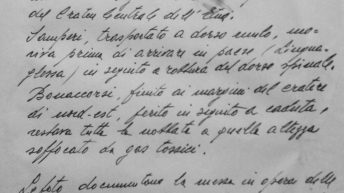 del Cratere Centrale dell'Etna.
Samperi, trasportato a dorso mulo, mo-
riva prima di arrivare in paese (Lingua-
glossa) in seguito a rottura del dorso spinale.
Bonaccorsi, finito ai margini del cratere
di nord-est, ferito in seguito a caduta,
restava tutta la nottata a quella altezza
soffocato da gas tossici.
Le foto documentano la messa in opera delle